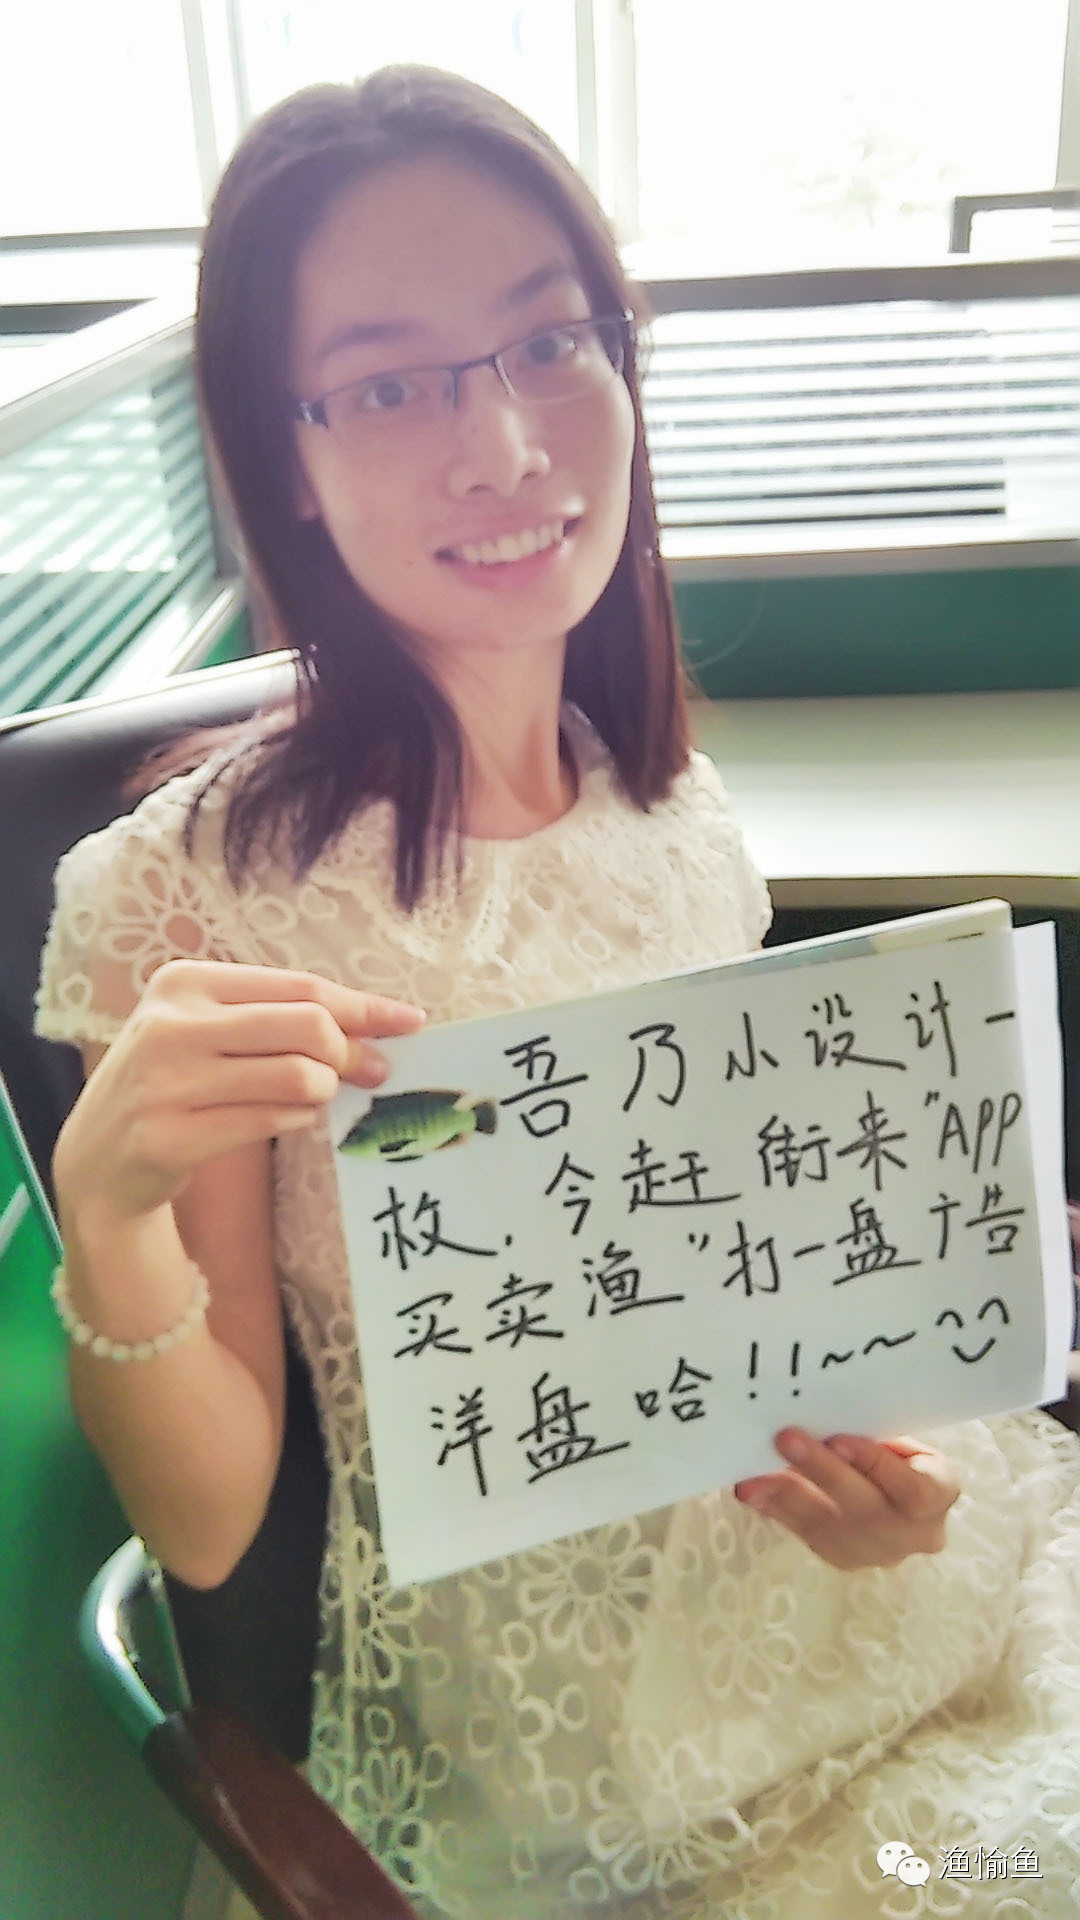 吾乃小设计一
枚.今赶街来"APP
买卖渔"打一盘广告
洋盘哈!!~~^^
渔愉鱼